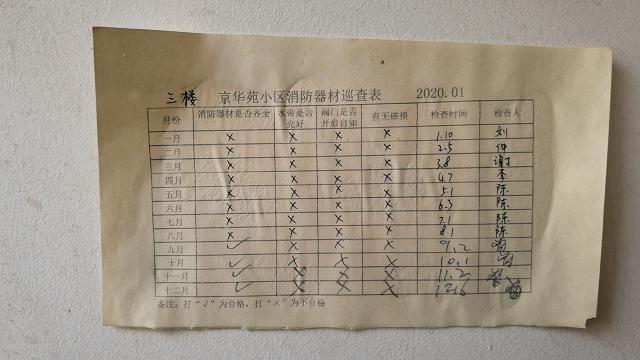 三楼 京华苑小区消防器材巡查表 2020.01
月份 消防器材是否齐全 水带是否完好 阀门是否开启自如 有无破损 检查时间 检查人
一月 × × × × 1.10 刘
二月 × × × × 2.5
三月 × × × × 3.8 谢
四月 × × × × 4.7 李
五月 × × × × 5.1 陈
六月 × × × × 6.3 陈
七月 × × × × 7.1 陈
八月 × × × × 8.1 陈
九月 ✓ × × × 9.2
十月 ✓ × × × 10.1
十一月 ✓ × × × 11.2
十二月 ✓ × × × 12.6
备注：打“√”为合格，打“×”为不合格